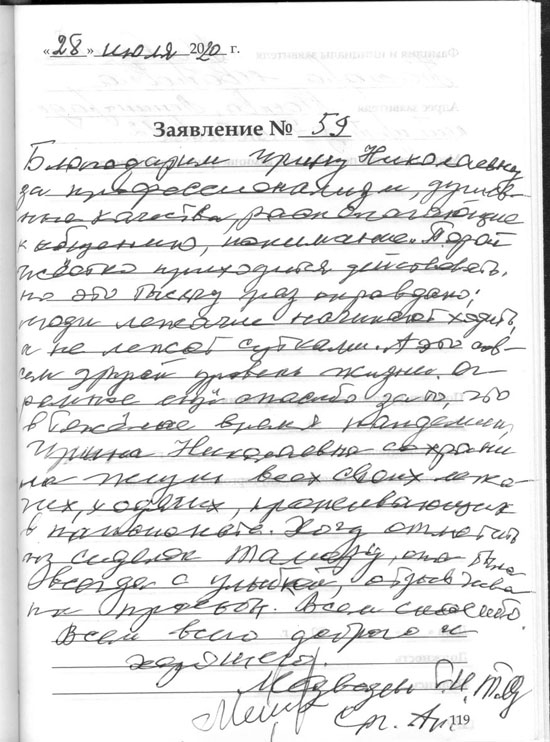 «28» июля 2020 г.
Заявление № 59
Благодарим Ирину Николаевну
за профессионализм, душев-
ные качества, располагающие
к общению, понимание. Порой
жёстко приходится действовать,
но это тысячу раз оправдано;
люди лежачие начинают ходить,
а не лежат сутками. А это сов-
сем другой уровень жизни. Ог-
ромное ей спасибо за то, что
в тяжёлое время пандемии,
Ирина Николаевна сохрани-
ла жизни всех своих лежа-
чих, ходячих, проживающих
в пансионате. Хочу отметить
из сиделок Тамару, она была
всегда с улыбкой, отзывчива
на просьбы. Всем спасибо.
Всем всего доброго и
хорошего.
Медведев
119